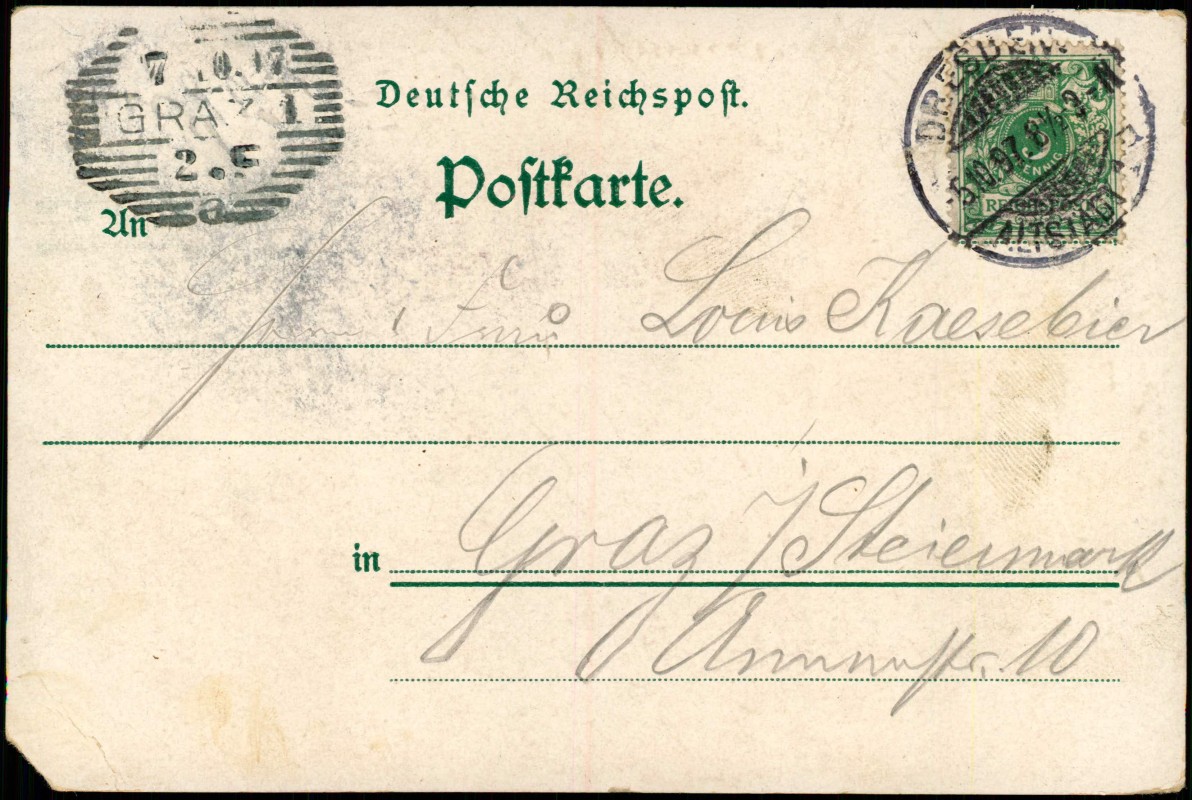 7 10.97
GRAZ 1
2.5
Deutsche Reichspost.
Postkarte.
DRESDEN
5.10.97. 8½-9
ALTSTADT
PFENNIG
REICHSPOST
An
Frau Louis Kaesebier
in Graz / Steiermark
Annenstr. 10